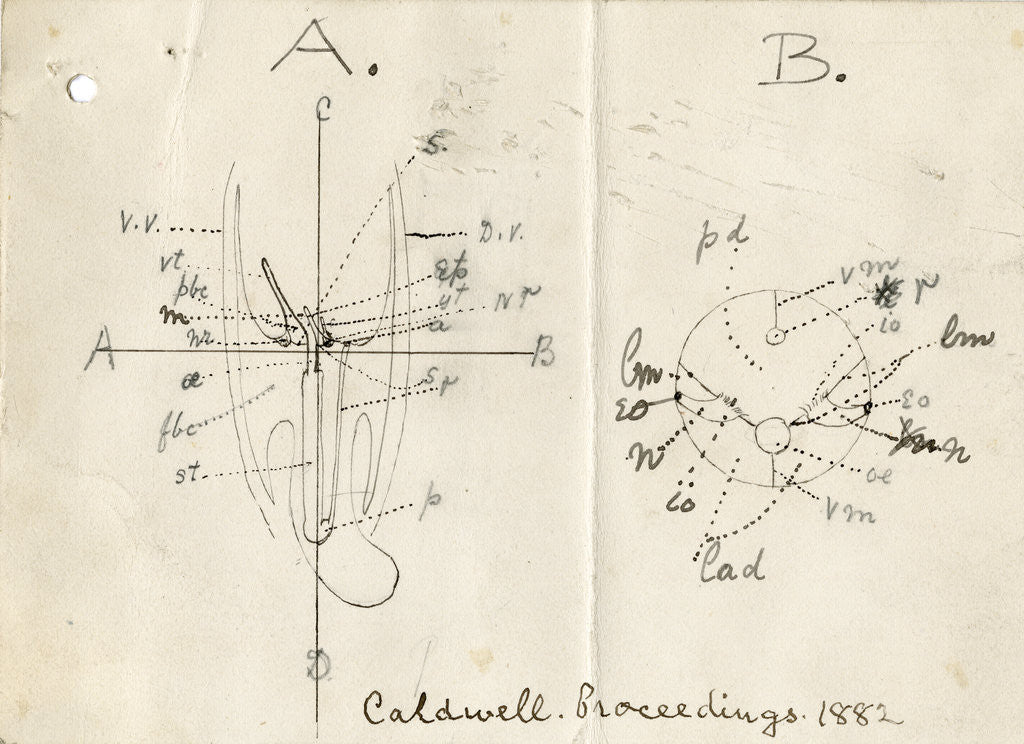 A.
B.
C
S.
V.V.
D.V.
vt
Ep
pbc
yt
m
a
A
B
œ
S
r
fbc
st
p
D
pd
vm
r
io
lm
lm
EO
EO
n
n
io
oe
vm
Cad
Caldwell. Proceedings. 1882